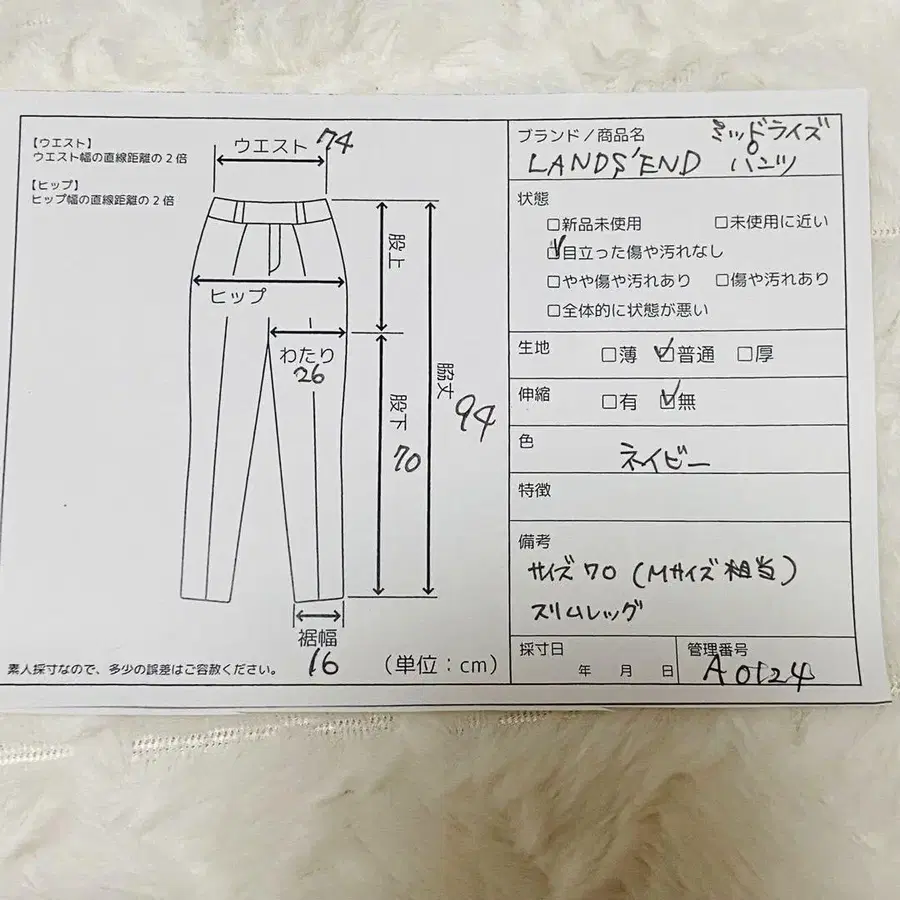 【ウエスト】
ウエスト幅の直線距離の2倍
【ヒップ】
ヒップ幅の直線距離の2倍
ウエスト 74
股上
ヒップ
わたり
26
脇丈
94
股下
70
裾幅
16
素人採寸なので、多少の誤差はご容赦ください。
(単位:cm)
ブランド/商品名 ミッドライズ
LANDS'END パンツ
状態
□新品未使用 □未使用に近い
☑目立った傷や汚れなし
□やや傷や汚れあり □傷や汚れあり
□全体的に状態が悪い
生地 □薄 ☑普通 □厚
伸縮 □有 ☑無
色
ネイビー
特徴
備考
サイズ70(Mサイズ相当)
スリムレッグ
採寸日
年 月 日
管理番号
A0124